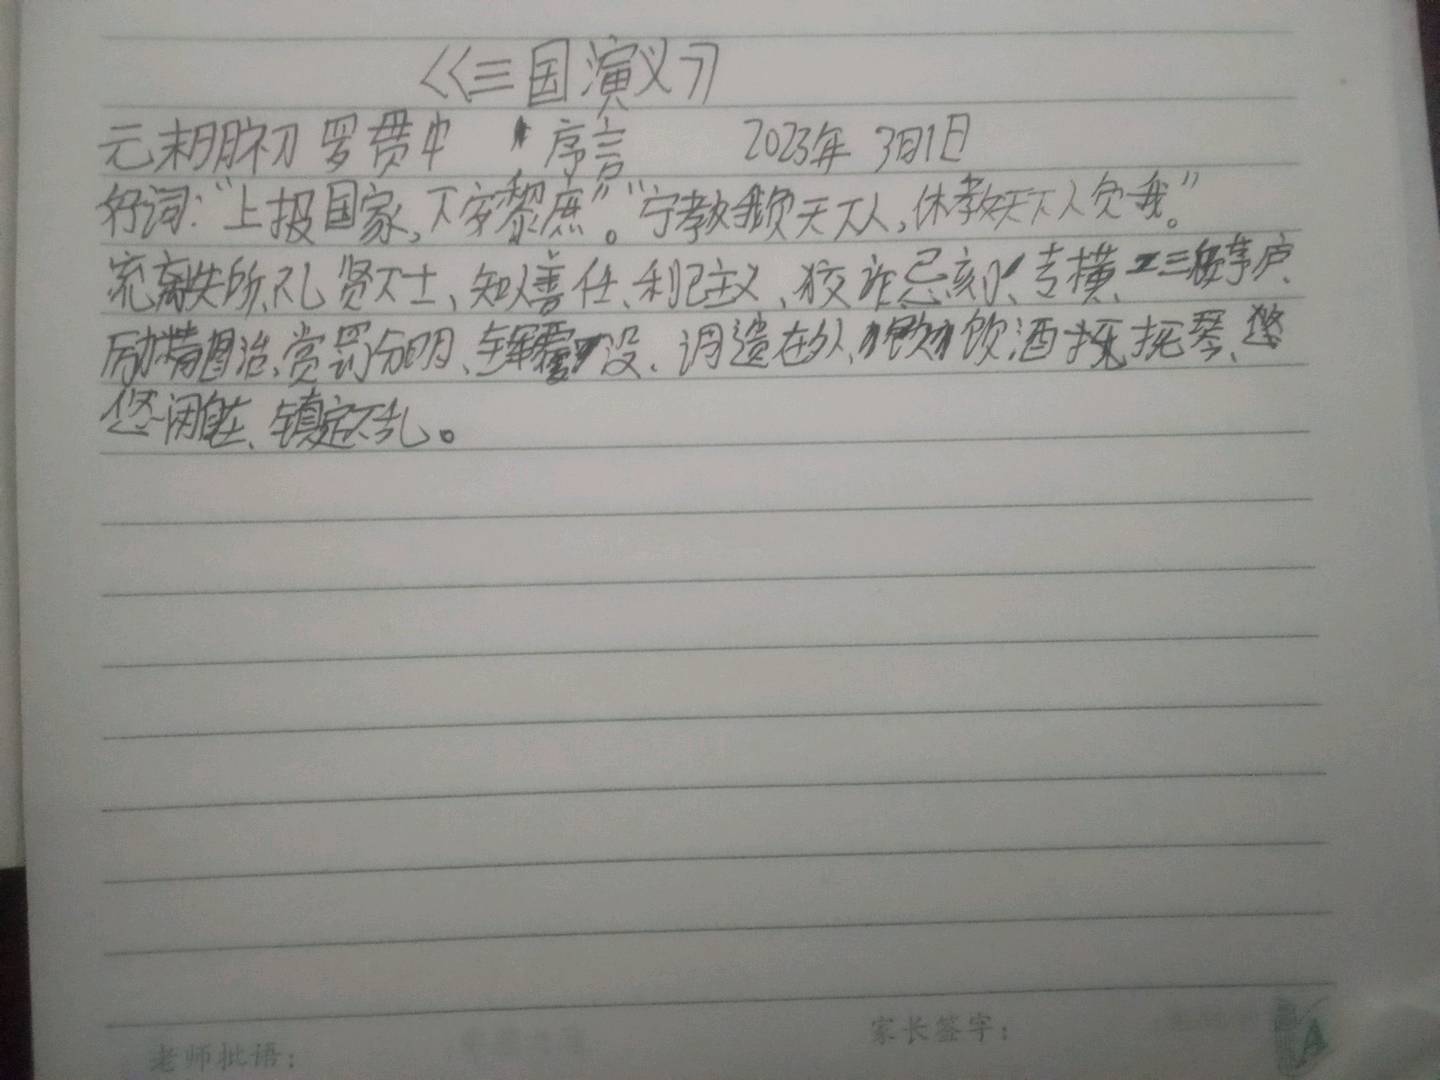 《三国演义》
元末明初 罗贯中 序言 2023年 3月1日
好词:“上报国家,下安黎庶”。“宁教我负天下人,休教天下人负我。”
流离失所、礼贤下士、知人善任、利己主义、狡诈忌刻、专横、三顾茅庐、
励精图治、赏罚分明、全军覆没、调遣在外、饮酒抚琴、悠
悠闲自在、镇定不乱。
老师批语:
家长签字: